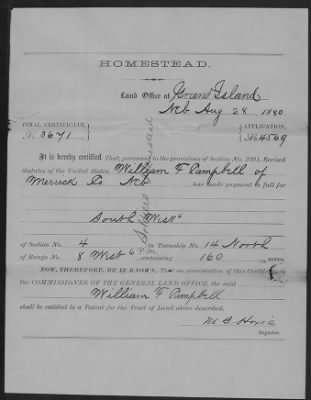 HOMESTEAD.
Land Office at Grand Island
Neb Aug 28 1880
FINAL CERTIFICATE, APPLICATION,
No. 3671 No. 4569
It is hereby certified That, pursuant to the provisions of Section No. 2291, Revised
Statutes of the United States, William F Campbell of
Merrick Co Neb has made payment in full for
South West 4
of Section No. 4 in Township No. 14 North
of Range No. 8 West 6 P.M. containing 160 acres.
NOW, THEREFORE, BE IT KNOWN, That on presentation of this Certificate to
the COMMISSIONER OF THE GENERAL LAND OFFICE, the said
William F Campbell
shall be entitled to a Patent for the Tract of Land above described.
M B Hoxie
Register.
Soldiers Homestead